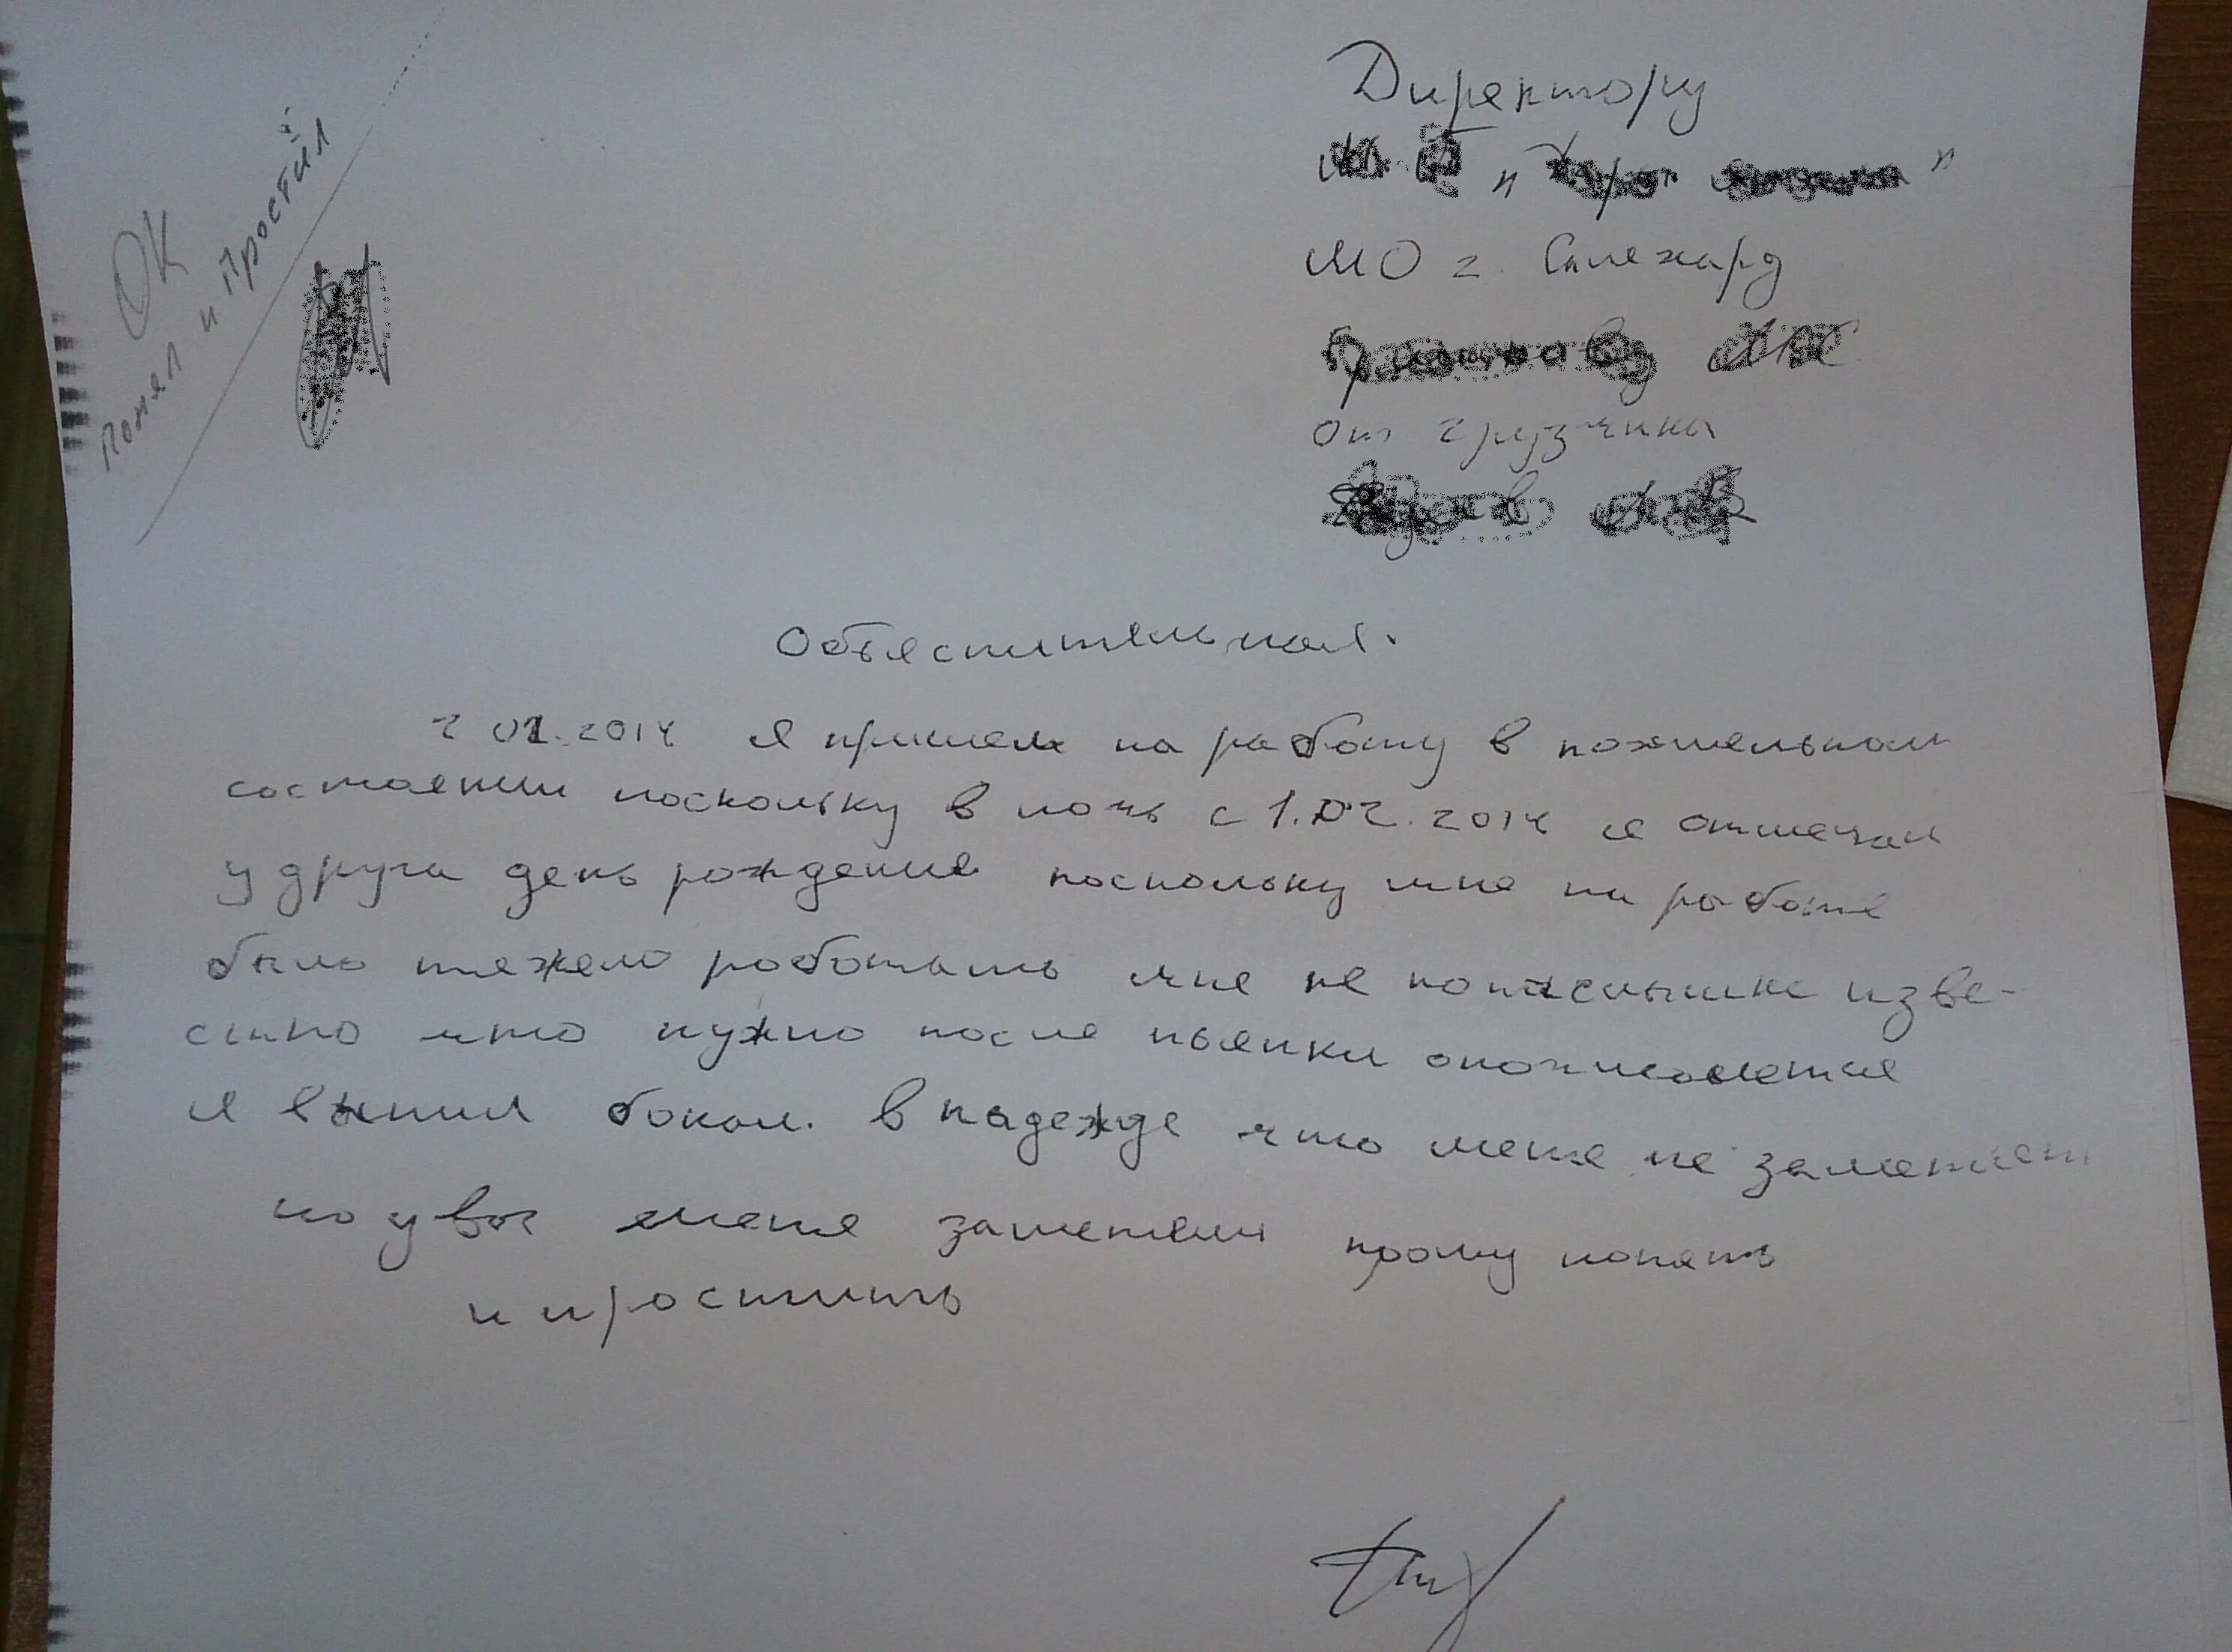 Директору
" "
МО г. Салехард
от грузчика
ОК
Понял и Простил
Объеснительная.
2 02.2014 я пришел на работу в похмельном
состаении поскольку в ночь с 1.02.2014 я отмечал
у друга день рождения поскольку мне на работе
было тежело работать мне не понаслышке изве-
стно что нужно после пьянки опохмелется
я выпил бокал. в надежде что меня не заметят
но увы меня заметели прошу понять
и простить